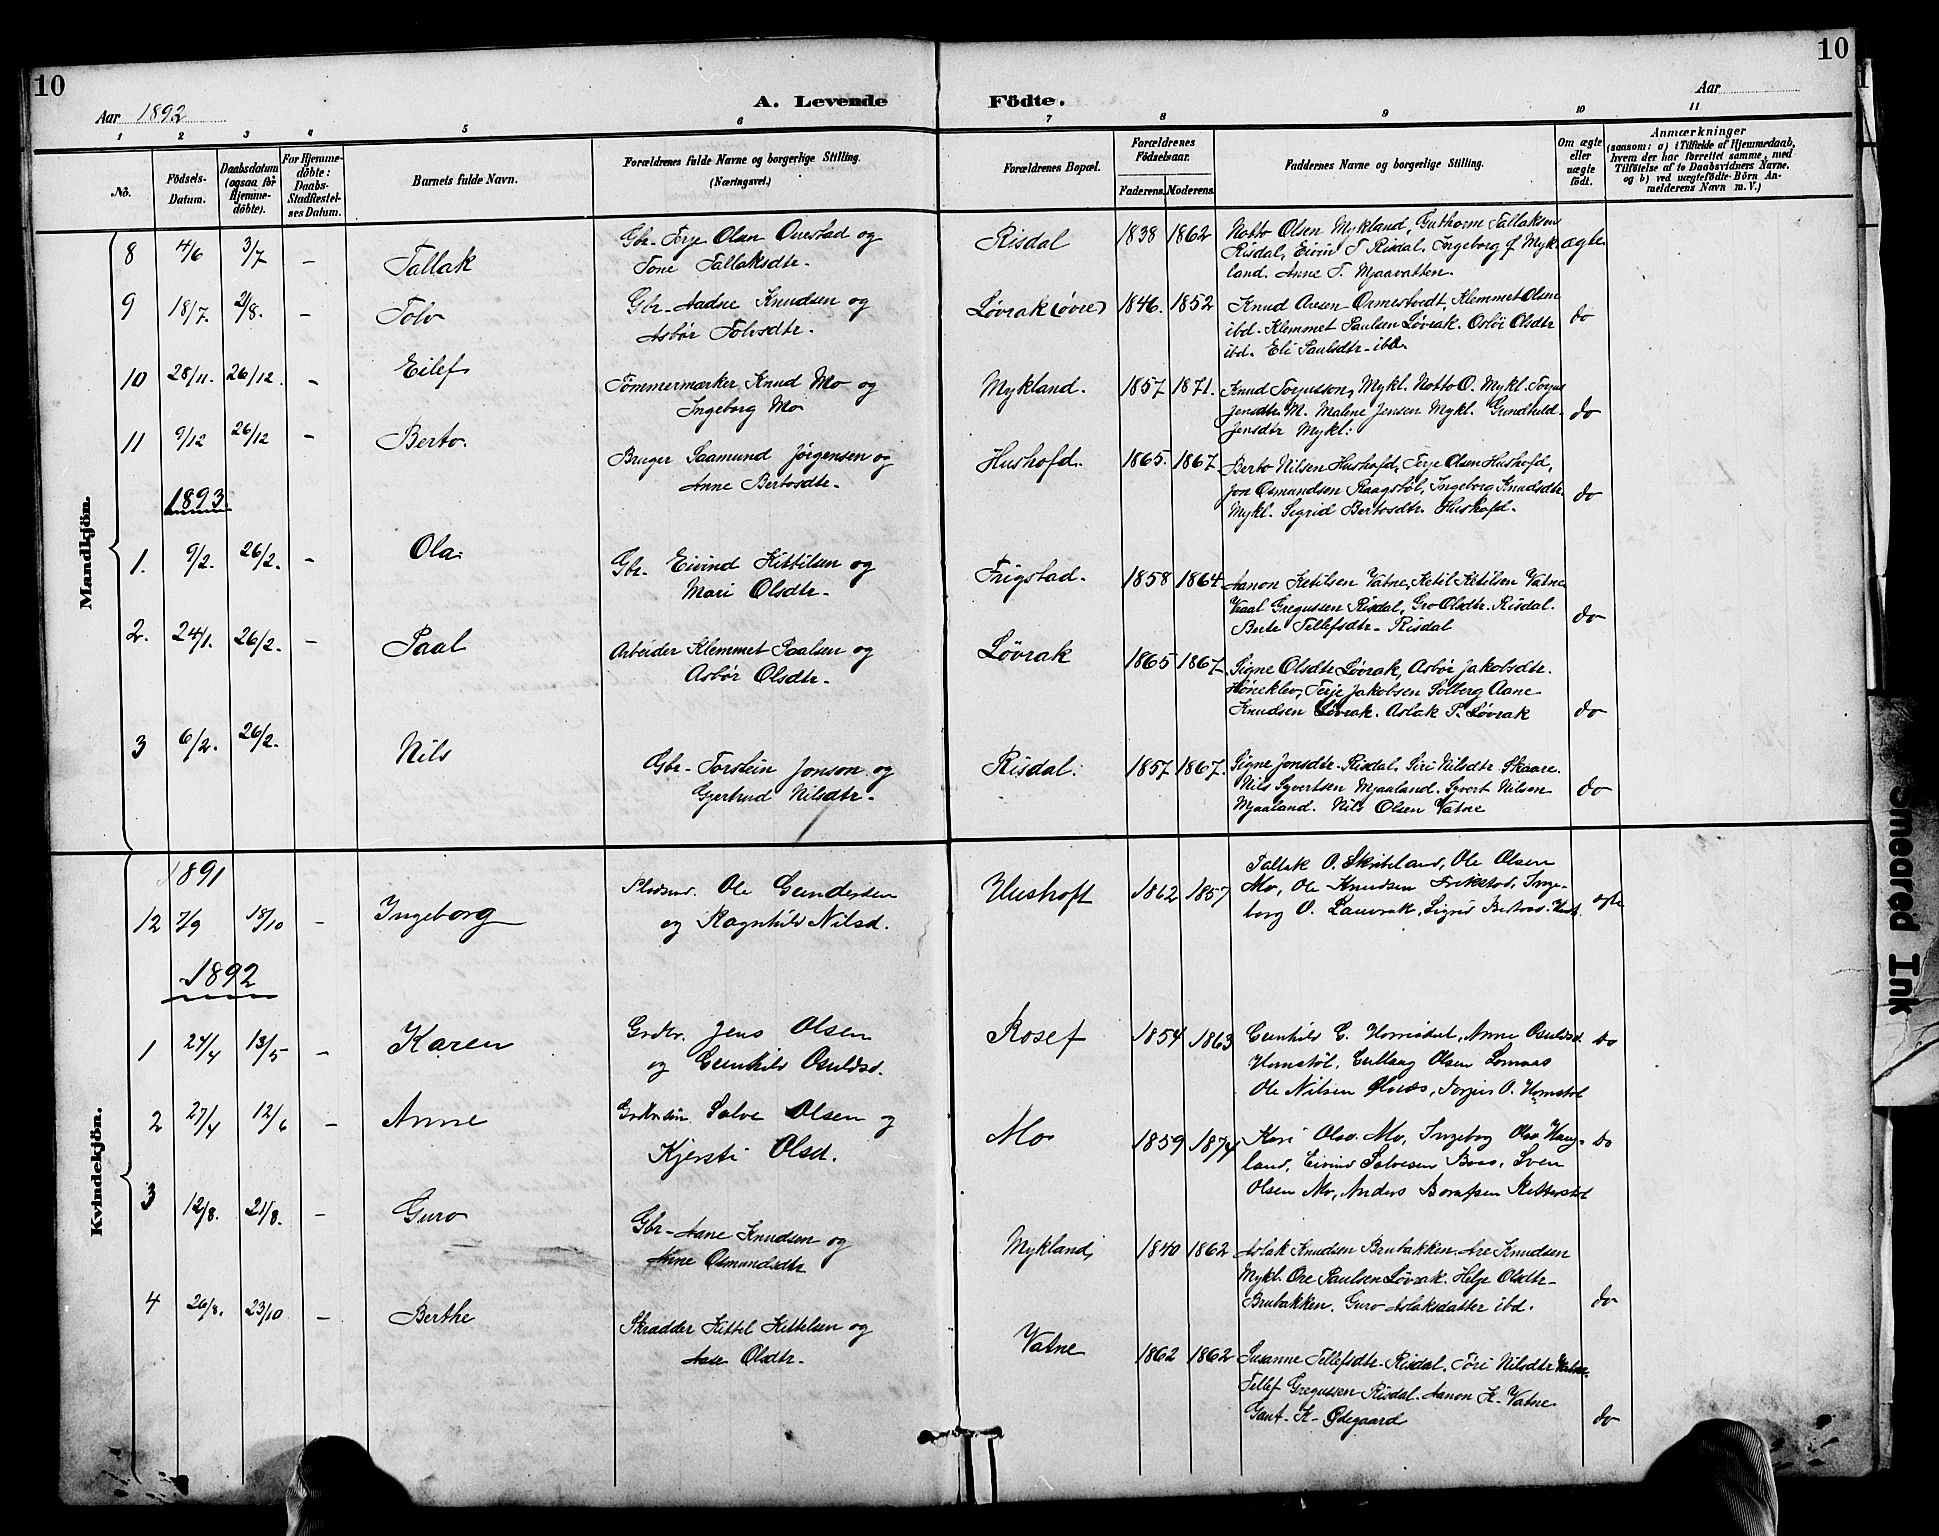 10
10
Aar 1892
A. Levende Födte.
Aar
1 2 3 4 5 6 7 8 9 10 11
No.
Födsels-Datum.
Daabsdatum (ogsaa for Hjemme-döbte).
For Hjemme-döbte: Daabs-Stadfestel-ses Datum.
Barnets fulde Navn.
Forældrenes fulde Navne og borgerlige Stilling.
(Næringsvei.)
Forældrenes Bopæl.
Forældrenes Födselsaar.
Faderens. Moderens.
Faddernes Navne og borgerlige Stilling.
Om ægte eller uægte födt.
Anmærkninger
(saasom: a) i Tilfælde af Hjemmedaab, hvem der har forrettet samme, med Tilföielse af to Daabsvidners Navne, og b) ved uægtefödte Börn Anmelderens Navn m. V.)
Mandkjön.
8 4/6 3/7 – Tallak
Gbr. Torje Olsen og
Tone Tallaksdtr.
Risdal 1838 1862
Notto Olsen Mykland, Guthorm Tallaksen
Risdal, Eivin T. Risdal, Ingeborg Myk-
land. Anne T. Maavatten.
ægte
9 18/7. 21/8. – Tolv
Gbr. Aadne Knudsen og
Asbör Tolvsdtr.
Løvrak (øvre) 1846. 1852
Knud Aresen Ormestvedt Klemmet Olsen
ibd. Klemmet Paulsen Løvrak. Osløi Olsdtr
ibd. Eli Paulsdtr ibd.
do
10 28/11. 26/12. – Eilef
Tømmermærker Knud Mo og
Ingeborg Mo
Mykland. 1857 1871.
Knud Torjusson, Mykl. Notto O. Mykl. Torjus
Jensdtr M. Malene Jensen Mykl. Gundhild
Jensdtr Mykl:
do
11 9/12 26/12 – Berto.
Bruger Saamund Jørgensen og
Anne Bertosdtr.
Hushofd. 1865. 1867.
Berto Nilsen Hushofd, Terje Olsen Hushofd,
Jon Osmundsen Raagsbøl, Ingeborg Knudsdtr.
Mykl. Sigrid Bertosdtr. Hushofd.
do
1893.
1. 9/2. 26/2. – Ola
Gbr. Eivind Kittilsen og
Mari Olsdtr.
Frigstad. 1858 1864
Aanon Ketilsen Vatne, Ketil Ketilsen Vatne
Vraal Gregussen Risdal, Gro Olsdtr. Risdal.
Berte Tellefsdtr. Risdal
do
2. 24/1. 26/2. – Paal
Arbeider Klemmet Paalsen og
Asbör Olsdtr.
Løvrak 1865 1867
Signe Olsdtr Løvrak, Asbör Jakobsdtr.
Høneklev, Terje Jakobsen Solberg Aane
Knudsen Løvrak. Aslak P. Løvrak
do
3 6/2. 26/2. Nils
Gbr. Torstein Jonson og
Gjertrud Nilsdtr.
Risdal. 1857 1867.
Signe Jonsdtr. Risdal. Siri Nilsdtr. Skaare.
Nils Syvertsen Mjaaland. Syvert Nilsen
Mjaaland. Nils Olsen Vatne
do
Kvindekjön.
1891
12 7/9 18/10 – Ingeborg
Pladsmd. Ole Gundersen
og Ragnhild Nilsd.
Hushoft 1862 1857
Tallak O. Skribeland, Ole Olsen
Mo, Ole Knudsen Frikstad, Inge-
borg O. Lauvrak, Sigrid Bertosd. Hush.
ægte
1892
1 24/4 13/5 – Karen
Grdbr. Jens Olsen
og Gunhild Osuldsd.
Rosef 1854 1863
Gunhild G. Homstöl, Anne Osuldsd.
Homstøl, Gullaug Olsen
Ole Nilsen, Torjus O. Homstøl
do
2 27/4 12/6 – Anne
Salve Olsen og
Kjersti Olsd.
Mo 1859 1874
Kari Olsd. Mo, Ingeborg Olsd. Haug-
land, Eivind Salvesen, Sven
Olsen Mo, Anders
do
3 12/8. 21/8. – Guro
Gbr. Aane Knudsen og
Anne Osmundsdtr
Mykland, 1840 1862
Aslak Knudsen Brubakken. Are Knudsen
Mykl. Ore Paulsen Løvrak. Helje Olsdtr.
Brubakken. Guro Aslaksdatter ibd.
do
4 26/8. 23/10 – Berthe
Skrædder Kittel Kittelsen og
Aase Olsdtr.
Vatne 1862 1862
Susanne Tellefsdtr. Risdal. Töri Nilsdtr Vatne.
Tellef Gregussen Risdal. Aanon K. Vatne
Gaut K. Ødegaard
do
Smeared Ink